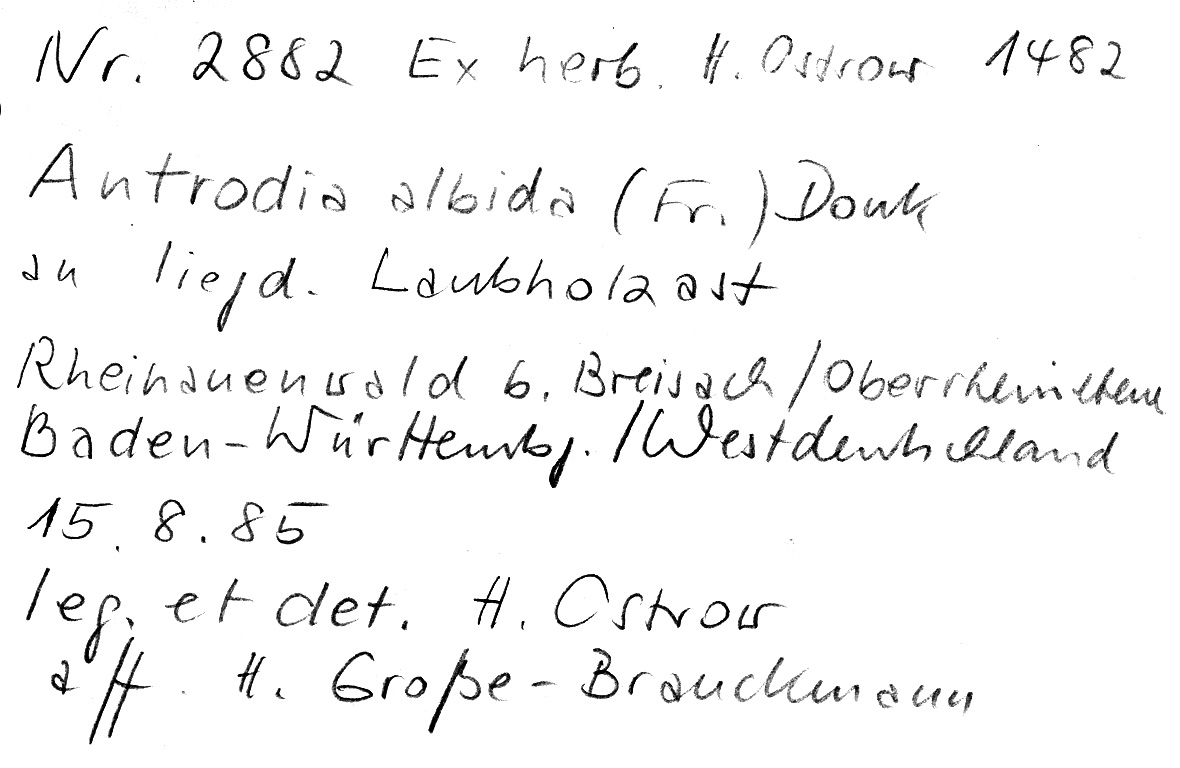 Nr. 2882 Ex herb. H. Ostrow 1482
Antrodia albida (Fr.) Donk
an liegd. Laubholzast
Rheinauenwald b. Breisach/Oberrheinebene
Baden-Württembg./Westdeutschland
15.8.85
leg. et det. H. Ostrow
aff. H. Große-Brauckmann